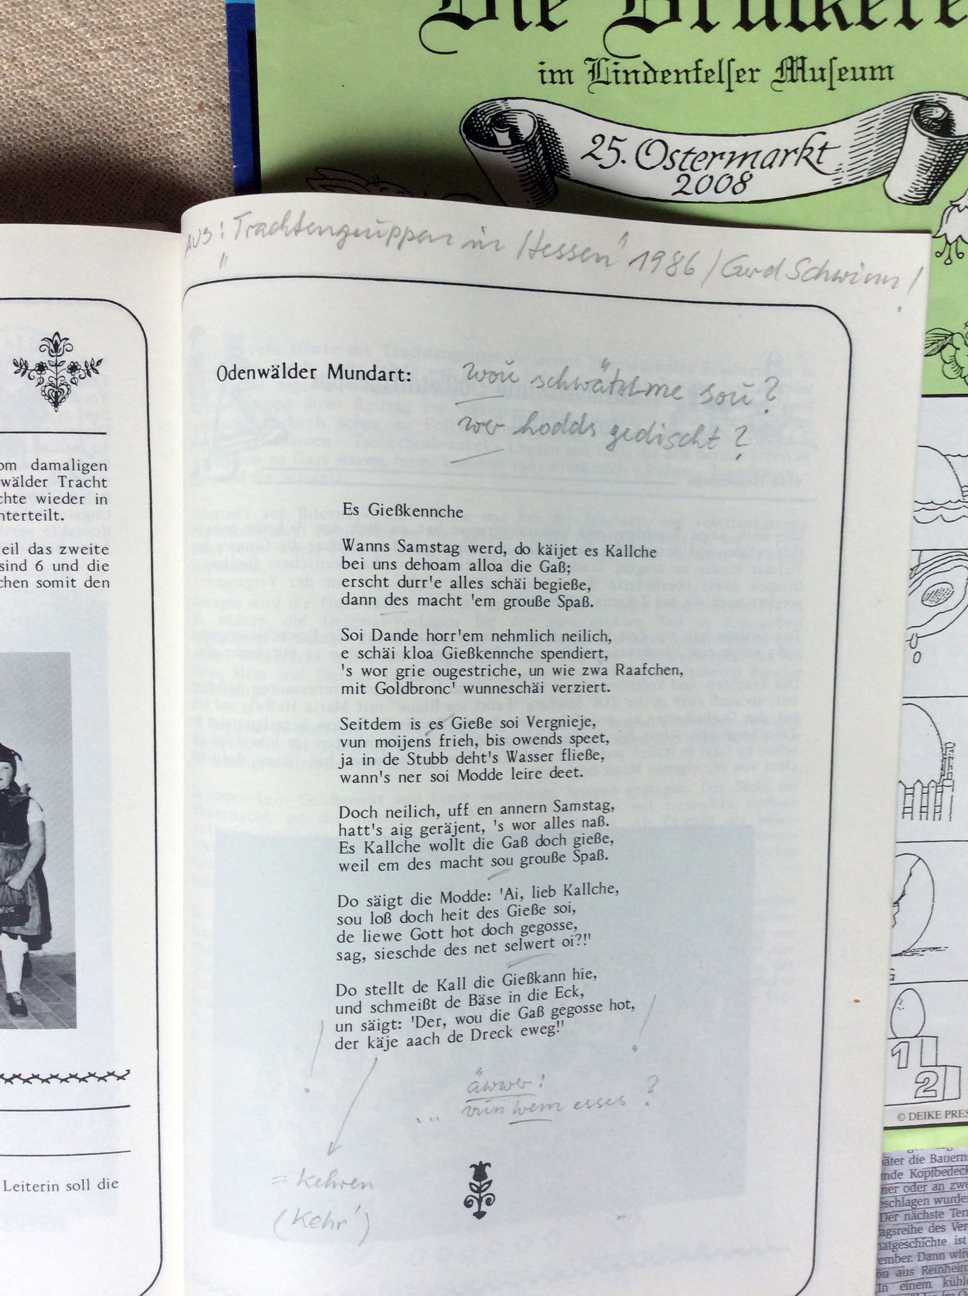 Die Druckere
im Lindenfelser Museum
25. Ostermarkt
2008
AUS: "Trachtengruppen in Hessen" 1986 / Gerd Schwinn /
Odenwälder Mundart:
woü schwätztme soü?
wer hodds gedischt?
Es Gießkennche
Wanns Samstag werd, do käijet es Kallche
bei uns dehoam alloa die Gaß;
erscht durr'e alles schäi begieße,
dann des macht 'em grouße Spaß.
Soi Dande horr'em nehmlich neilich,
e schäi kloa Gießkennche spendiert,
's wor grie ougestriche, un wie zwa Raafchen,
mit Goldbronc' wunneschäi verziert.
Seitdem is es Gieße soi Vergnieje,
vun moijens frieh, bis owends speet,
ja in de Stubb deht's Wasser fließe,
wann's ner soi Modde leire deet.
Doch neilich, uff en annern Samstag,
hatt's aig geräjent, 's wor alles naß.
Es Kallche wollt die Gaß doch gieße,
weil em des macht sou grouße Spaß.
Do säigt die Modde: 'Ai, lieb Kallche,
sou loß doch heit des Gieße soi,
de liewe Gott hot doch gegosse,
sag, sieschde des net selwert oi?!'
Do stellt de Kall die Gießkann hie,
und schmeißt de Bäse in die Eck,
un säigt: 'Der, wou die Gaß gegosse hot,
der käje aach de Dreck eweg!'
äwwer:
... vun wem esses ?
= Kehren
(Kehr')
om damaligen
wälder Tracht
chte wieder in
nterteilt.
eil das zweite
sind 6 und die
chen somit den
Leiterin soll die
1
2
© DEIKE PRES
päter die Bauern
nde Kopfbedeck
ner oder an zwe
schlagen wurde
Der nächste Ter
agsreihe des Ver
natgeschichte ist
ember. Dann wir
on aus Reinheim
In einem kühl